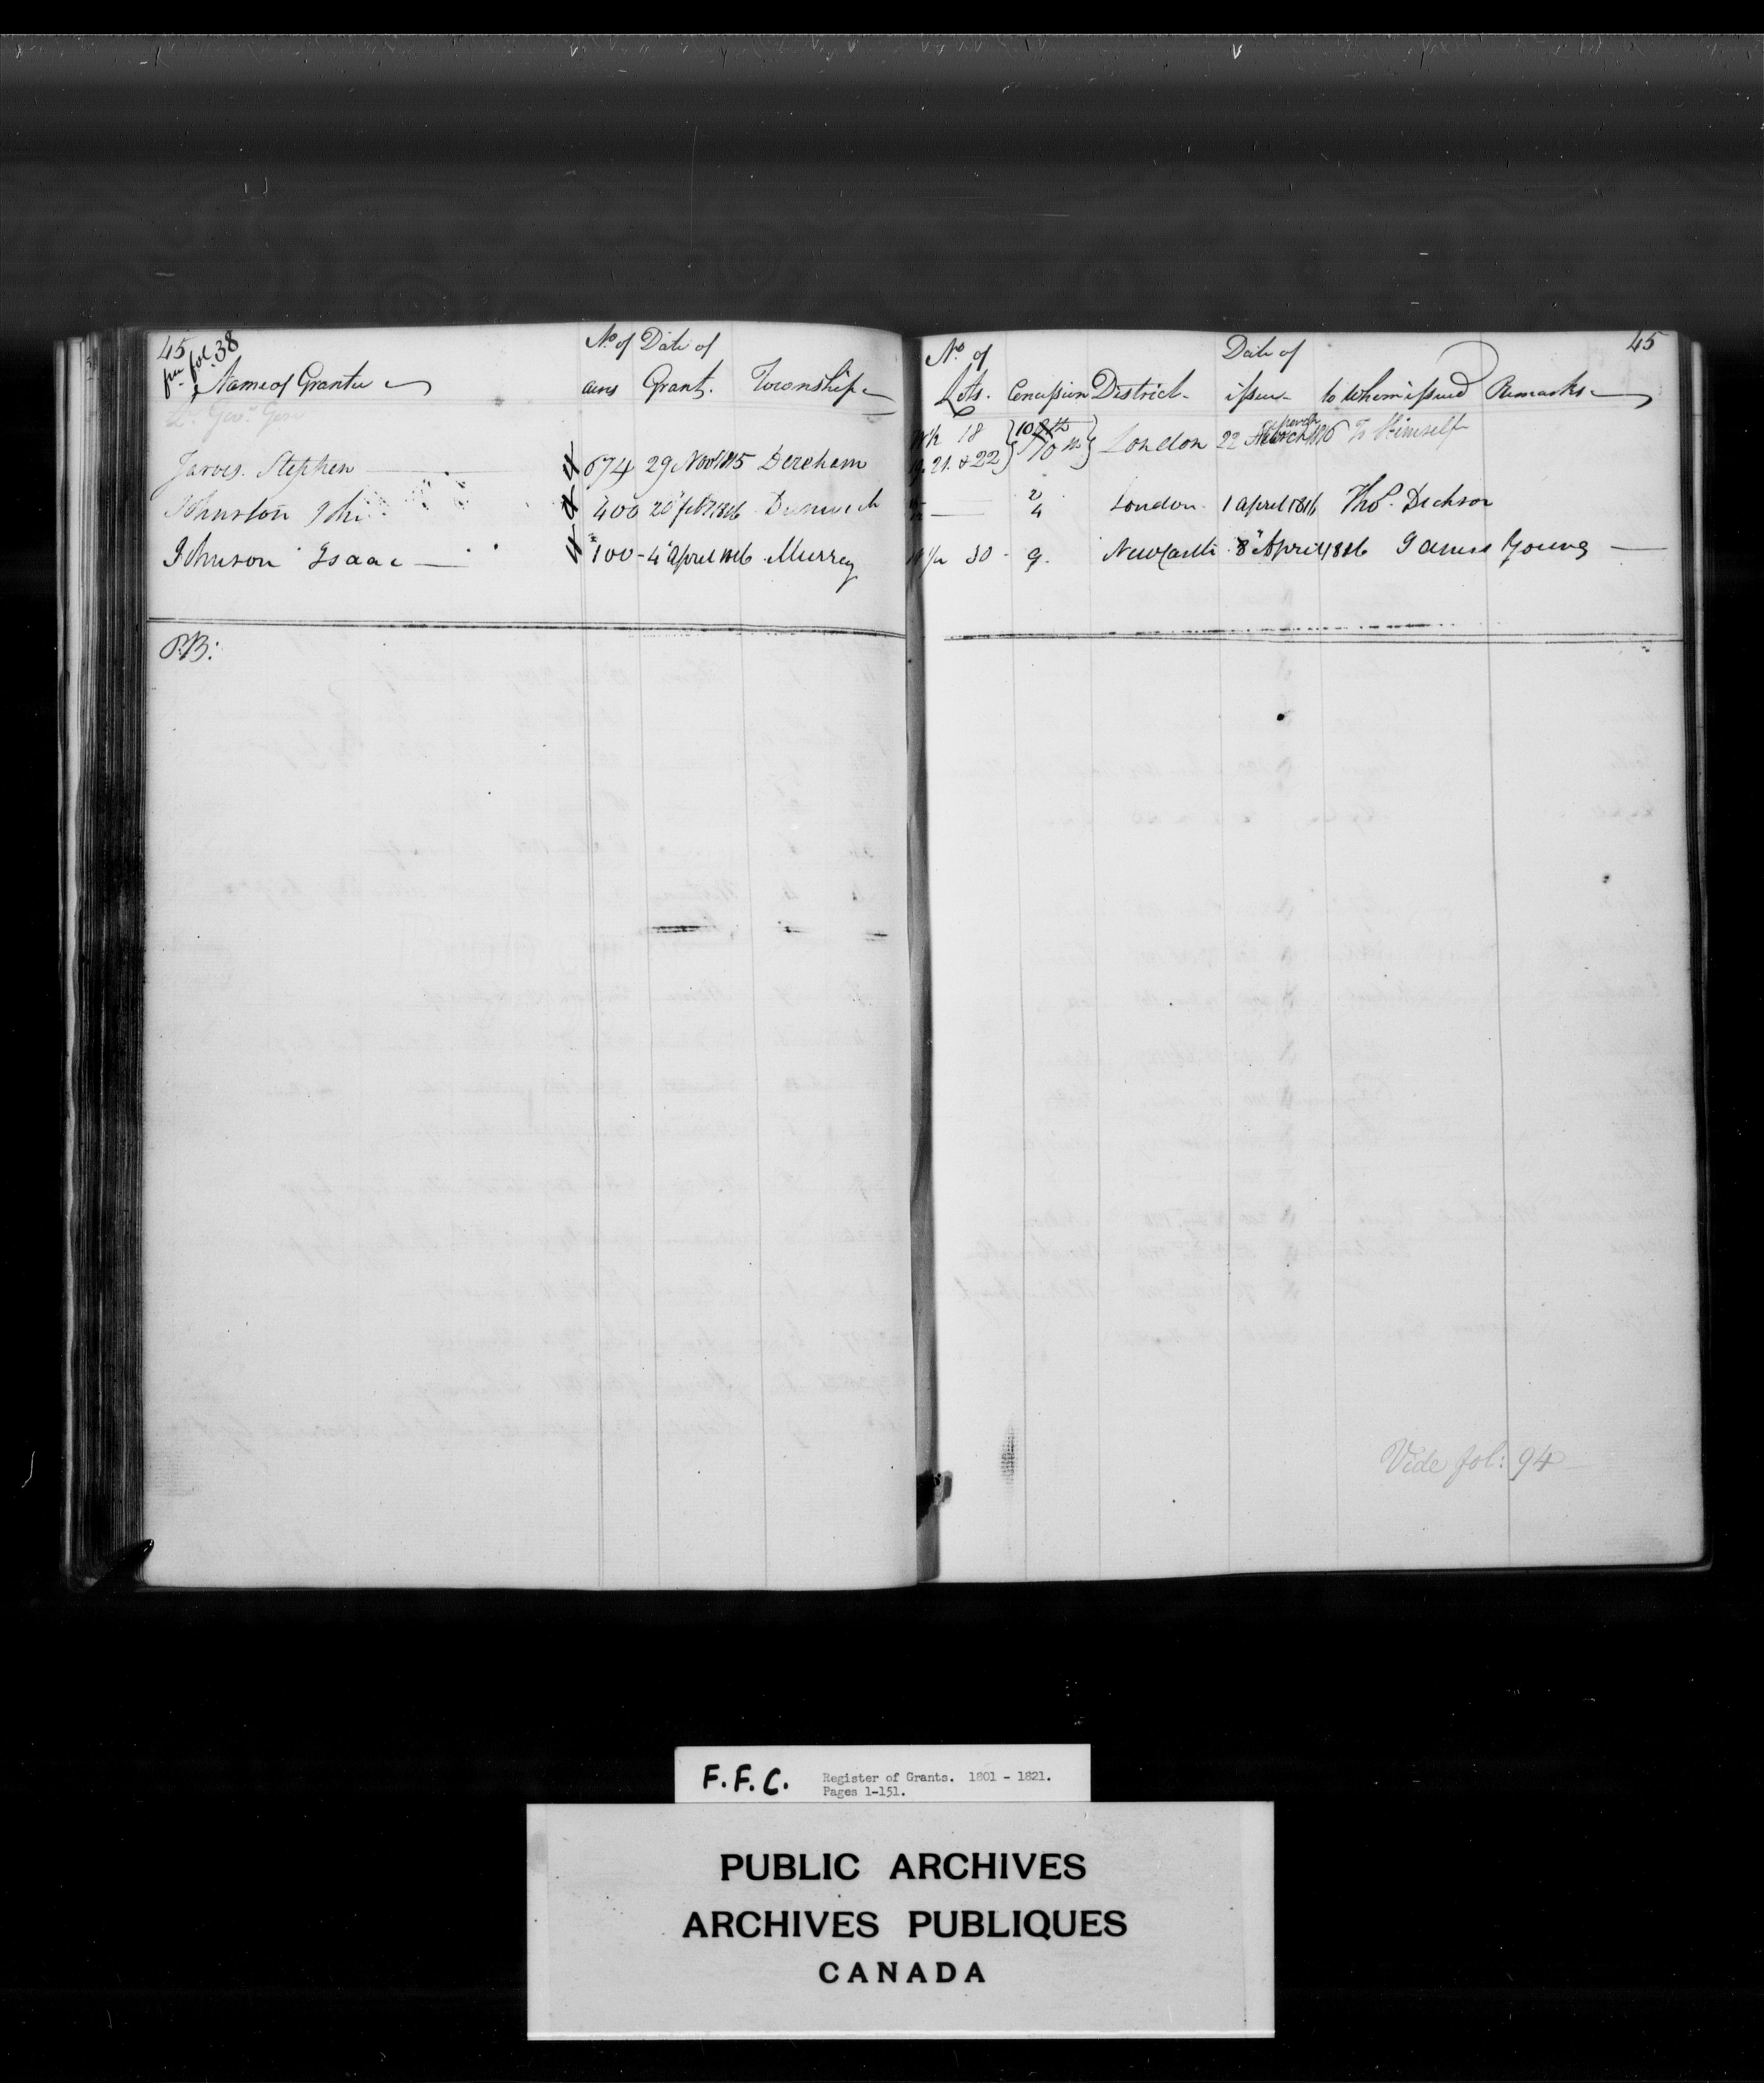 45
fol. 38
No. of Date of
Name of Grantee acres Grant. Township
Jarvis. Stephen 674 29 Novr 1815 Dereham
Johnston John 400 20 feby 1816 Dunwich
Johnson Isaac 100 - 4 april 1816 Murray
P.B:
No. of Date of 45
Lots. Concession District issue to Whom issued Remarks
18 10 London 22 March 1816 To Himself
21. & 22
2
4 London. 1 april 1816 Thos. Dickson
30 9. Newcastle 8 April 1816 James Young
Vide fol: 94
F.F.C. Register of Grants. 1801 - 1821.
Pages 1-151.
PUBLIC ARCHIVES
ARCHIVES PUBLIQUES
CANADA